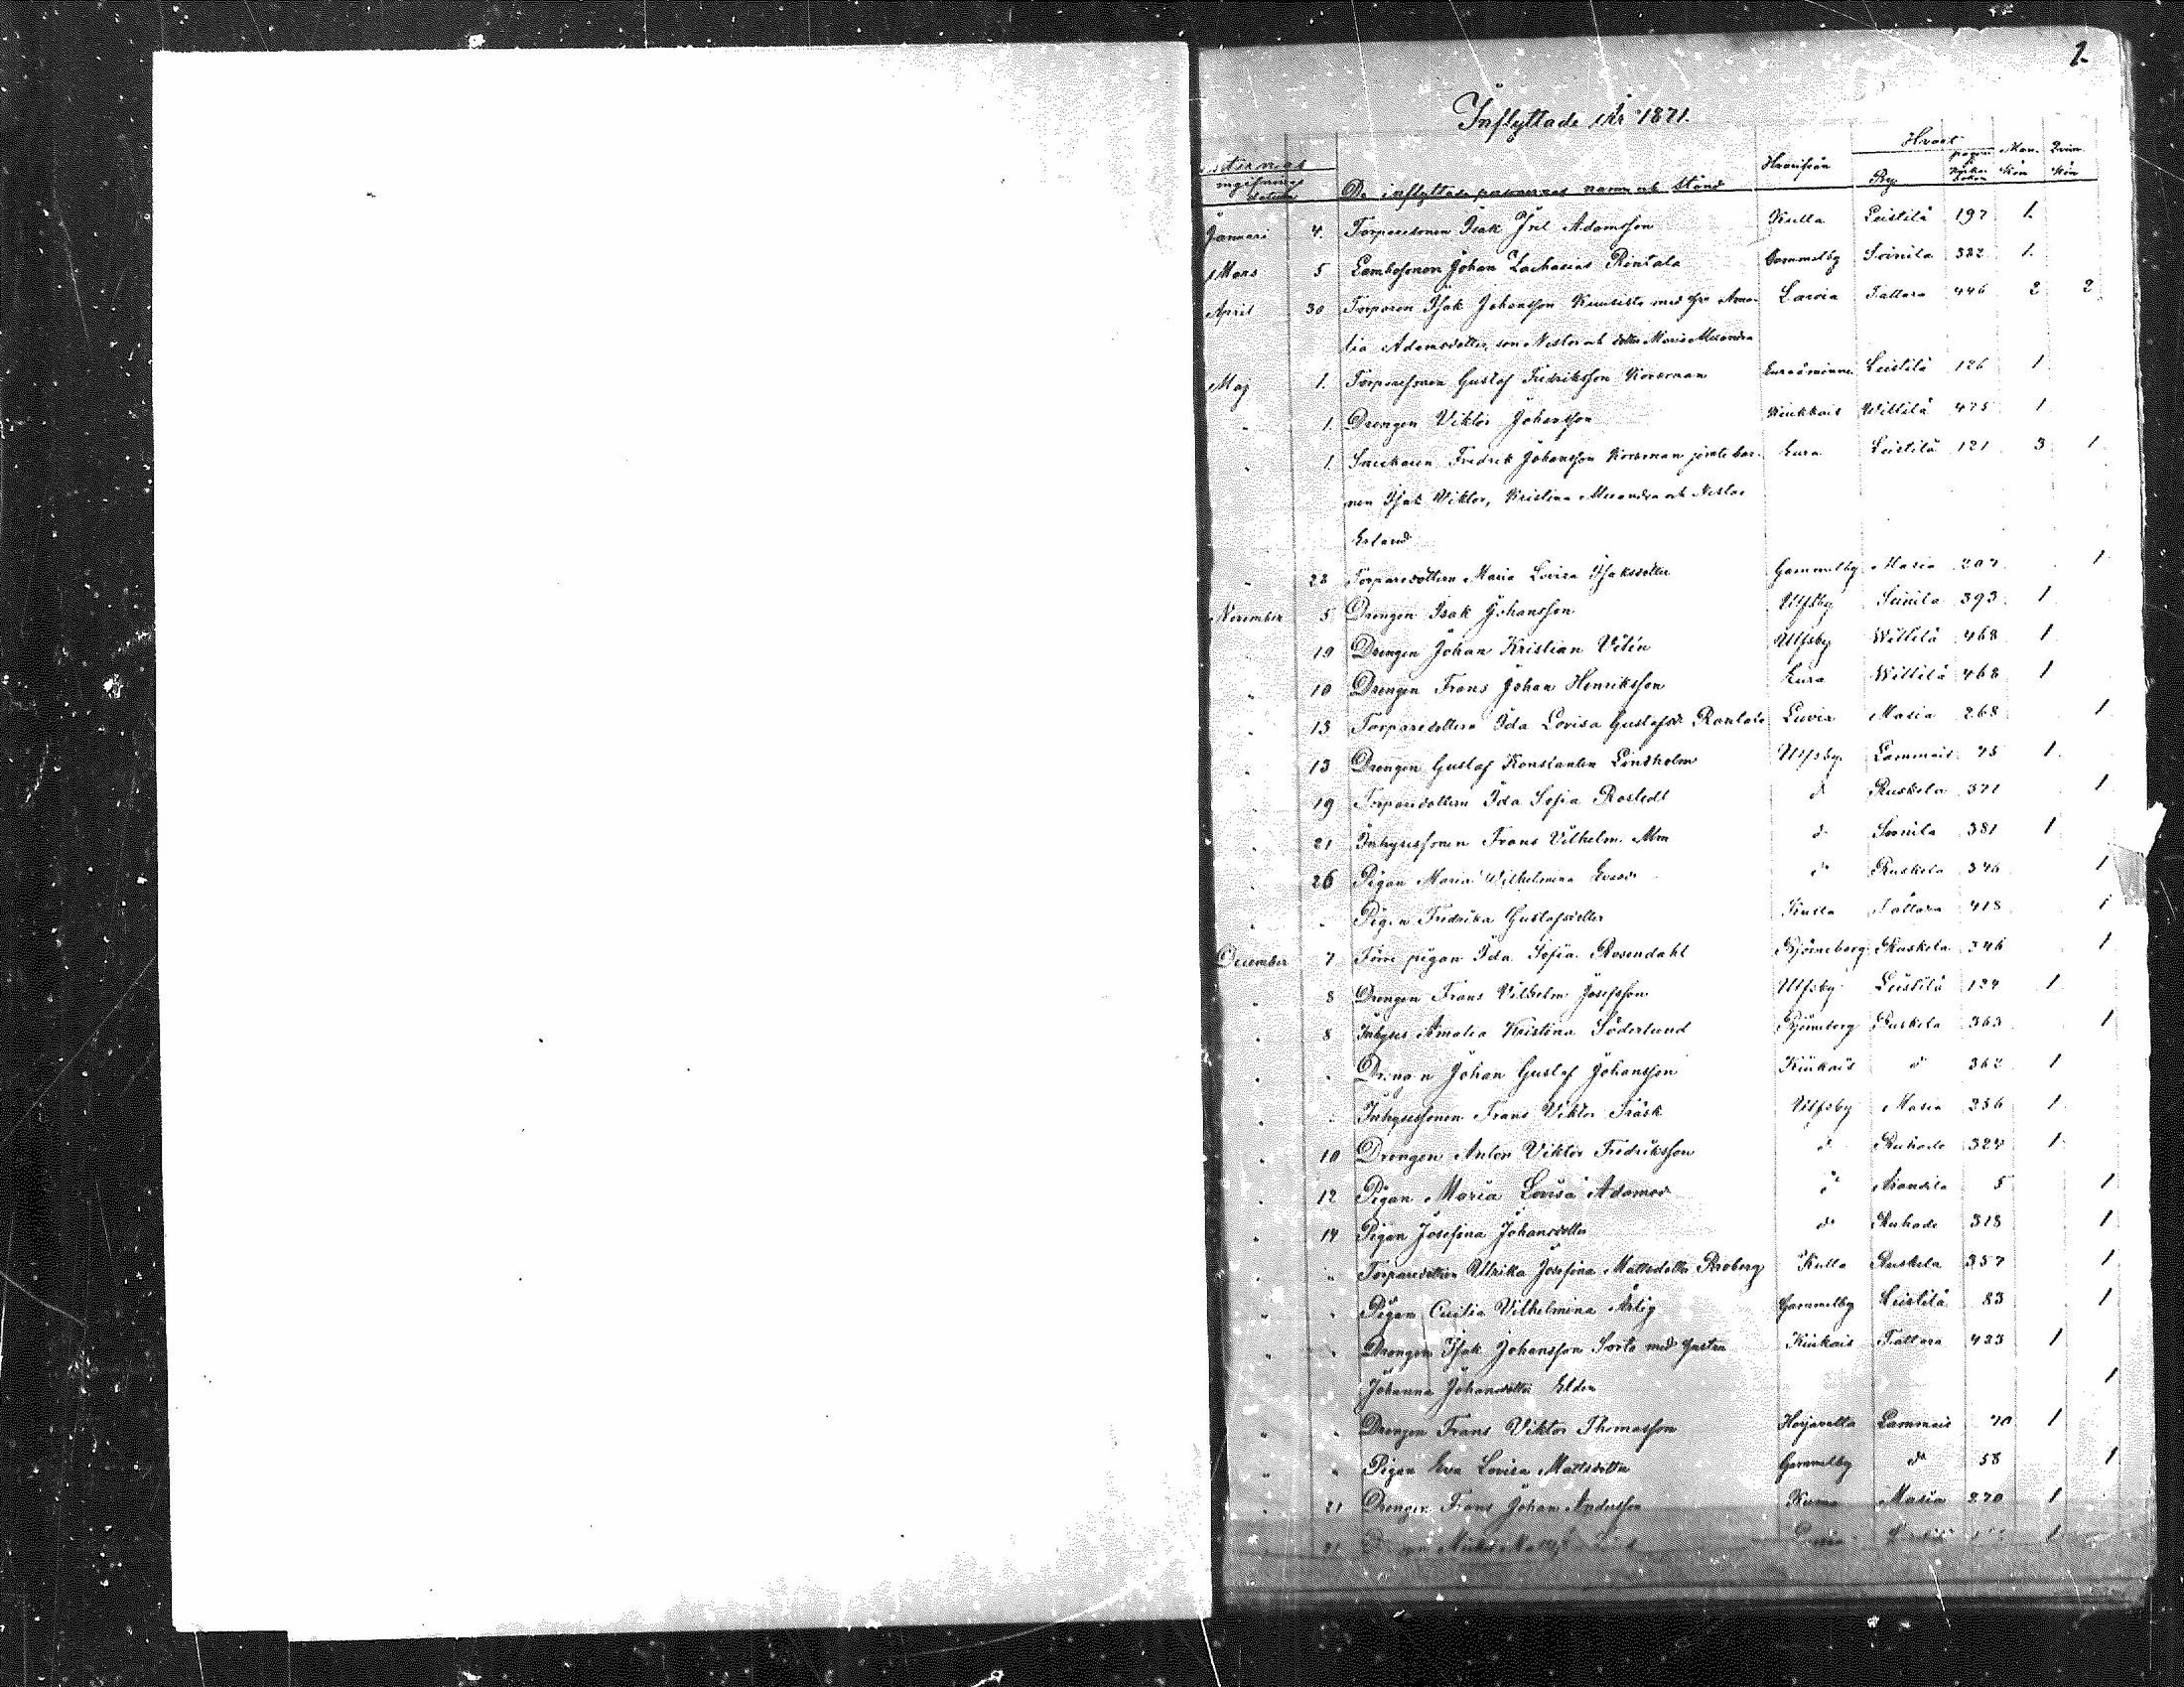 1.
Inflyttade år 1871.
Hvart
Hvarifrån By Man. kön Qvin. kön
De inflyttade personernas namn och stånd
Januari 4. Torparesonen Isak Joel Adamsson Kulla Leistilä 197 1.
Mars 5 Johan Zacharias Rintala Gammelby Soinila 382 1.
April 30 Torparen Isak Johansson Kuusisto med hu Ama- Lavia Tattara 446 2 2
lia Adamsdotter, son Nestor och dotter Maria Alexandra
Maj 1. Torparesonen Gustaf Fredriksson Korsman Euraåminne Leistilä 126 1
" 1. Drengen Viktor Johansson Kiukkais Wittilä 475 1
" 1. Fredrik Johansson Korsman jemte bar- Eura Leistilä 121 3 1
nen Isak Viktor, Kristina Alexandra och Nestor
Erland
" 28 Torparedottern Maria Lovisa Isaksdotter Gammelby Masia 207 1
November 5 Drengen Isak Johansson Ulfsby Soinila 393 1
19 Drengen Johan Kristian Ulfsby Wittilä 468 1
" 10 Drengen Frans Johan Henriksson Eura Wittilä 468 1
" 13 Torparedottern Ida Lovisa Gustafsdr Luvia Masia 268 1
" 13 Drengen Gustaf Konstantin Lindholm Ulfsby Lammais 75 1
" 19 Torparedottern Ida Sofia Rostedt d:o Ruskela 371 1
" 21 Inhysessonen Frans Vilhelm Alm d:o Soinila 381 1
" 26 Pigan Maria Wilhelmina d:o Ruskela 346 1
" " Pigan Fredrika Gustafsdotter Kulla Tattara 418 1
December 7 Förre pigan Ida Sofia Rosendahl Björneborg Ruskela 346 1
" 8 Drengen Frans Vilhelm Josefsson Ulfsby Leistilä 124 1
" 8 Inhyses Amalia Kristina Söderlund Björneborg Ruskela 363 1
" " Drengen Johan Gustaf Johansson Kiukais d:o 362 1
" " Inhysessonen Frans Viktor Träsk Ulfsby Masia 256 1
" 10 Drengen Anton Viktor Fredriksson d:o 324 1
" 12 Pigan Maria Lovisa Adamsd d:o 5 1
" 14 Pigan Josefina Johansdotter d:o 318 1
" " Torparedottern Ulrika Josefina Mattsdotter Kulla Ruskela 357 1
" " Pigan Cecilia Vilhelmina Ärlig Gammelby Leistilä 83 1
" " Drengen Isak Johansson Sorto med hustru Kiukais Tattara 423 1
Johanna Johansdotter Elden 1
" " Drengen Frans Viktor Thomasson Harjavalta Lammais 70 1
" " Pigan Eva Lovisa Mattsdotter Gammelby d:o 58 1
" 21 Drengen Frans Johan Andersson Kumo Masia 270 1
21 1